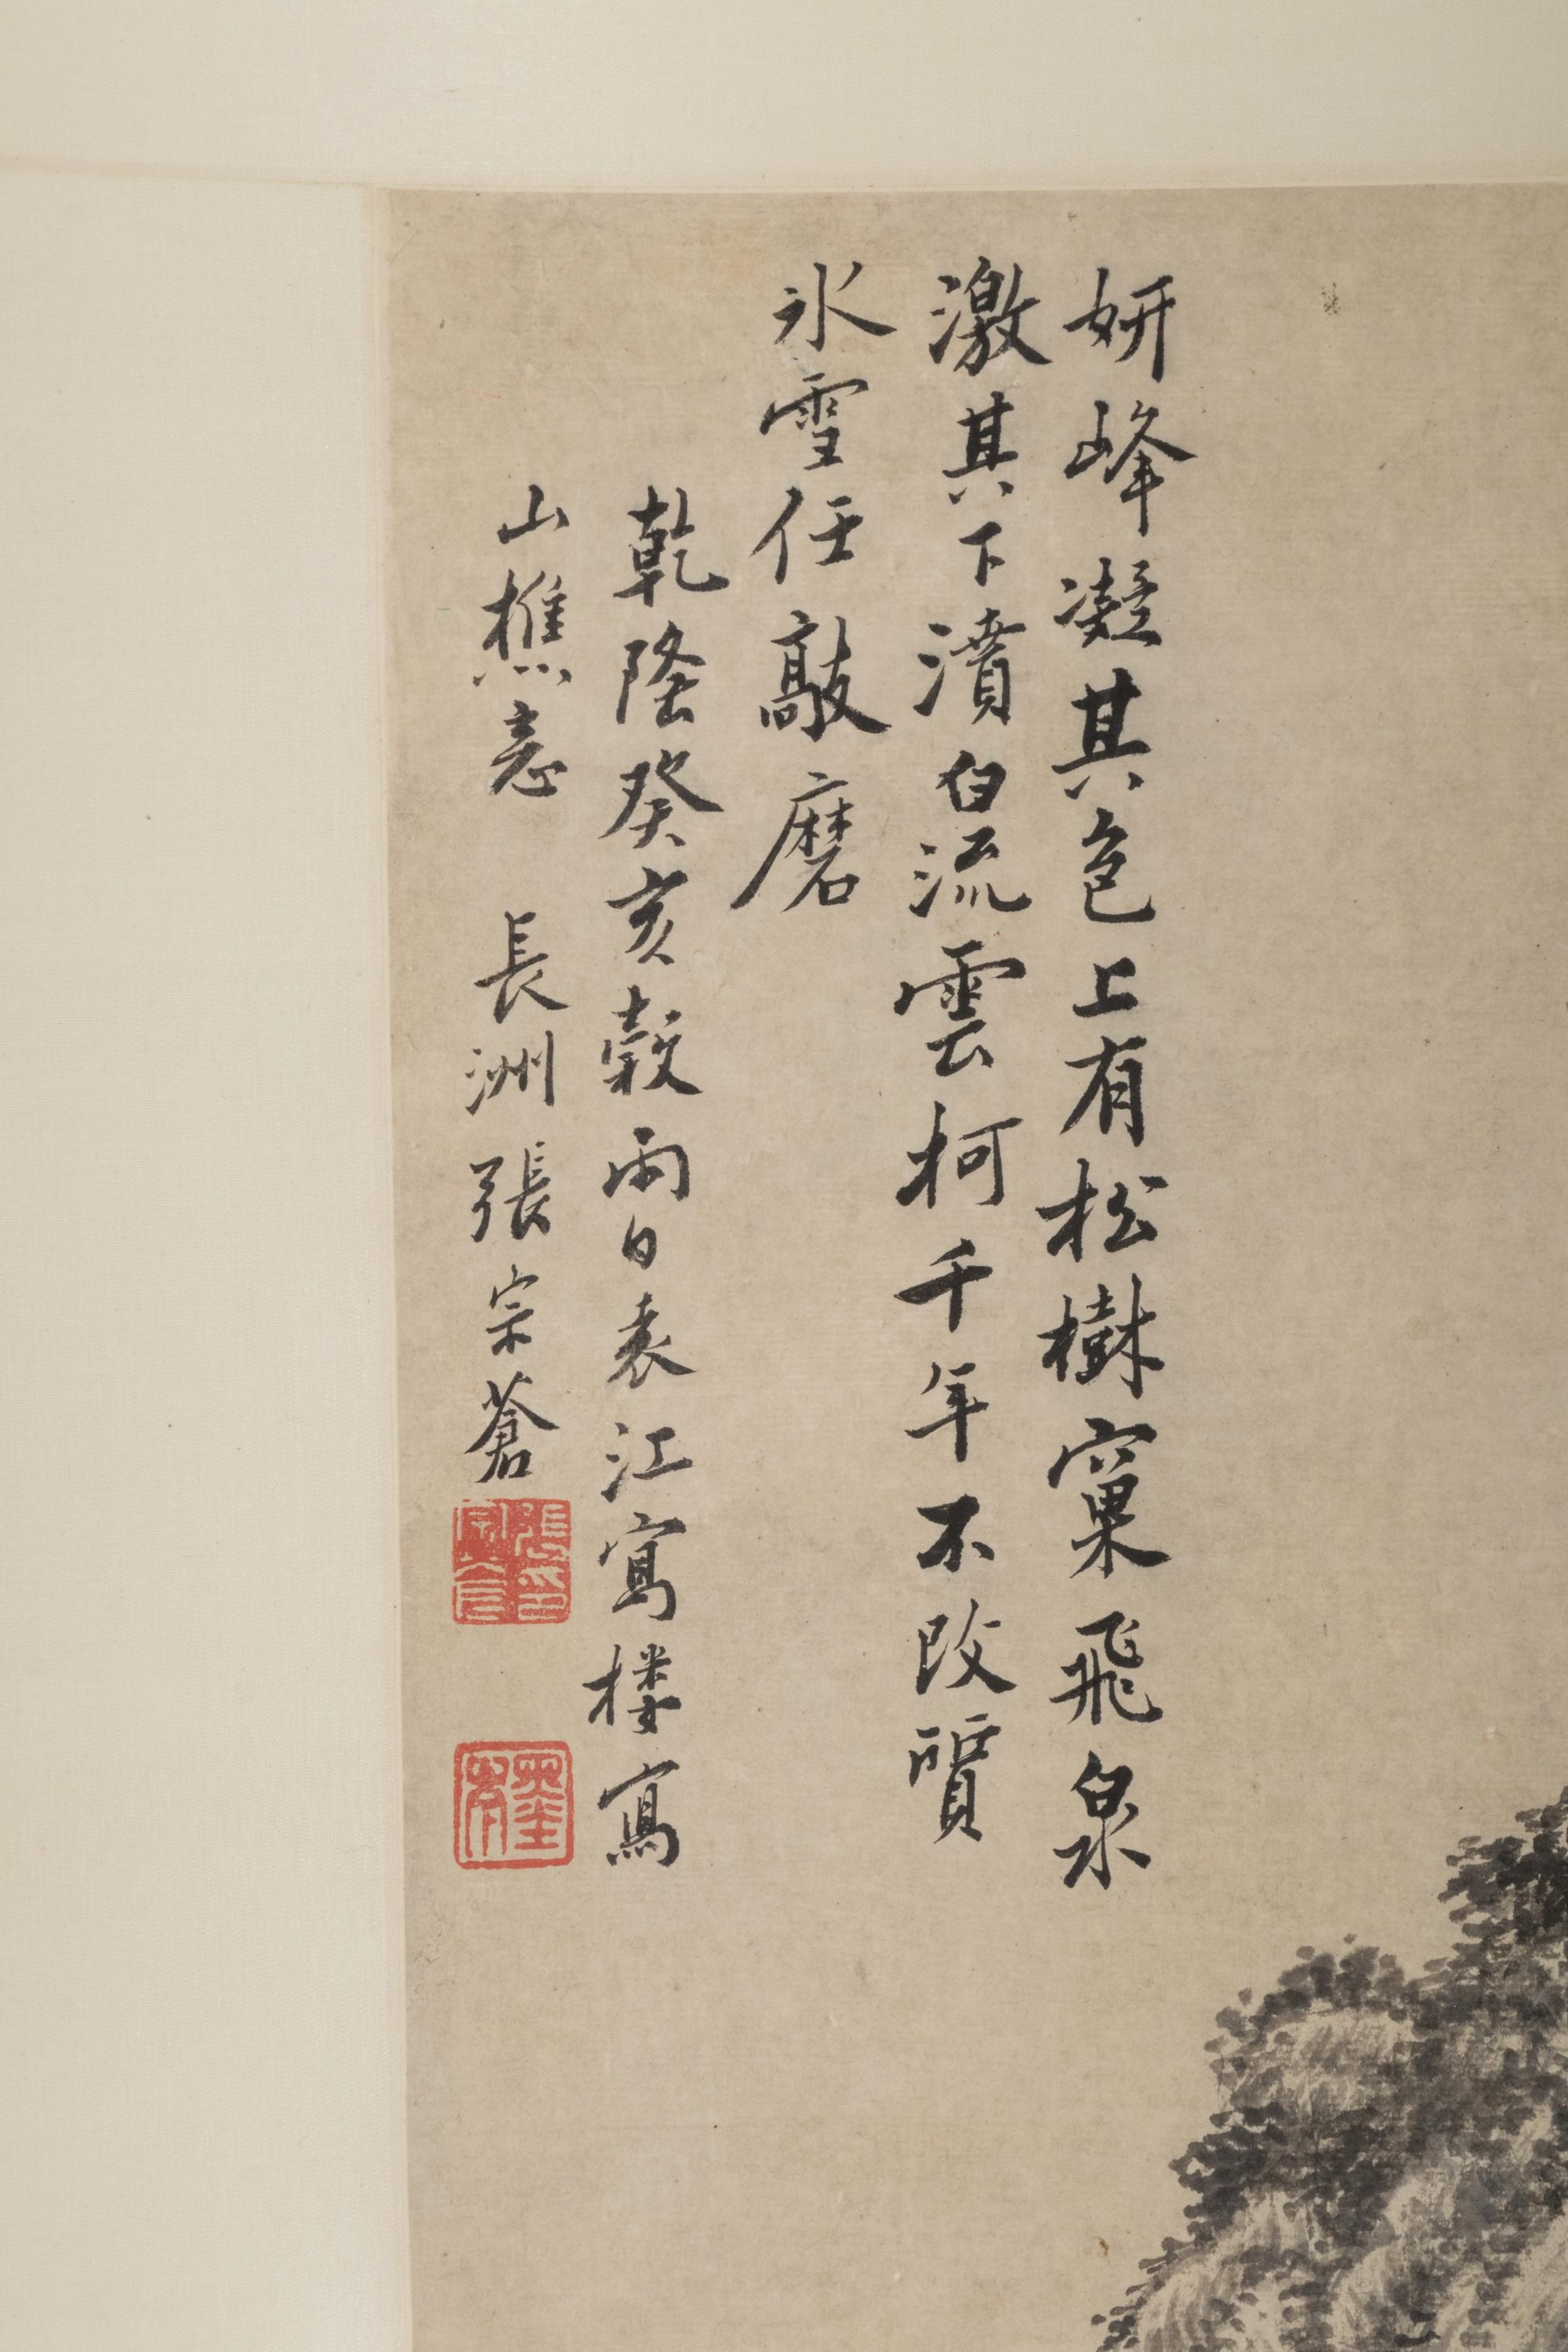 妍峰凝其色上有松樹窠飛泉
激其下濆白流雲柯千年不改質
氷雪任敲磨
乾隆癸亥穀雨日袁江寓楼寫
山樵意 長洲張宗蒼
張印宗蒼
墨岑